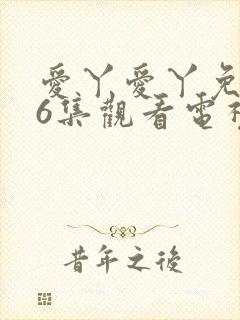 愛丫愛丫免
6集觀看電視
昔年之後